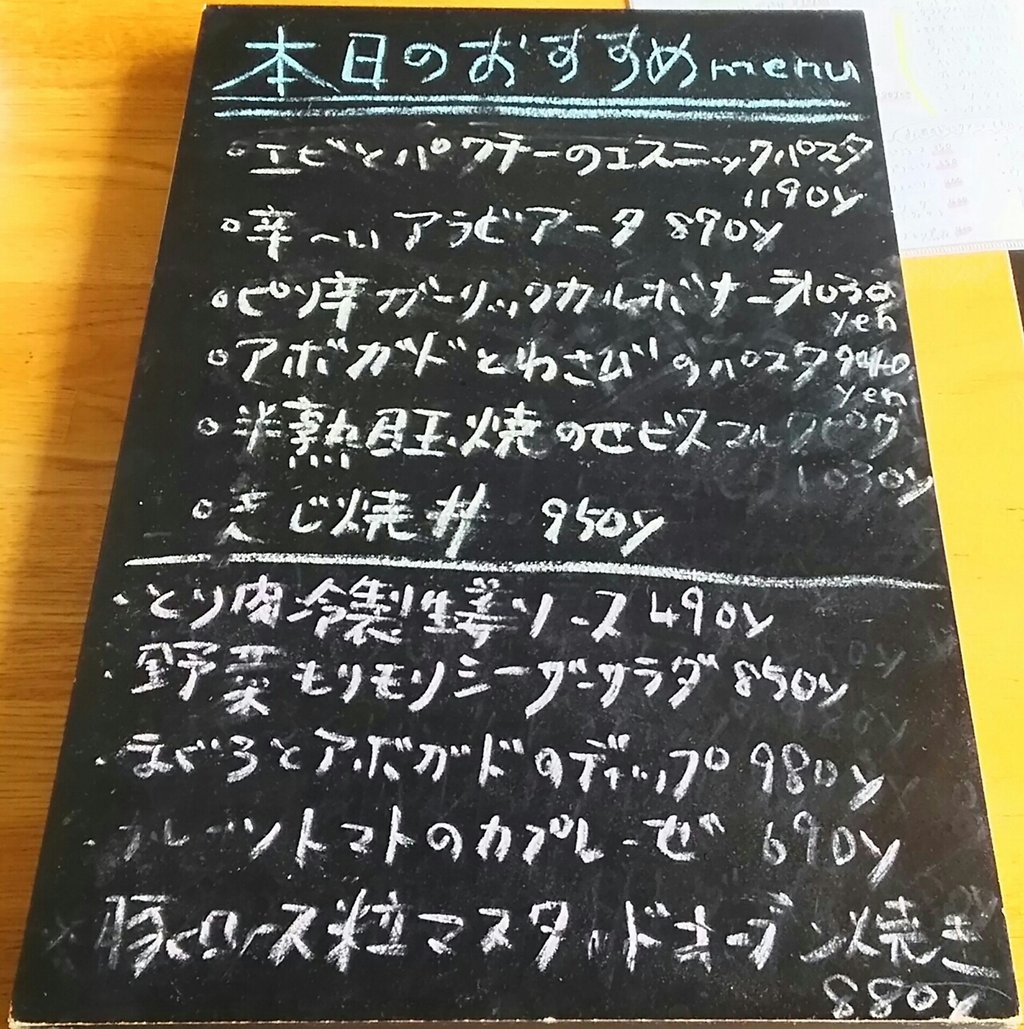 本日のおすすめmenu
エビとパクチーのエスニックパスタ
1190y
辛〜い アラビアータ 890y
ピリ辛ガーリックカルボナーラ1030
yen
アボガドとわさびのパスタ940
yen
半熟目玉焼のせビスマルクピザ
1030y
きじ焼丼 950y
とり肉冷製生姜ソース 490y
野菜モリモリシーザーサラダ 850y
まぐろとアボガドのディップ 980y
フルーツトマトのカプレーゼ 690y
豚ロース粒マスタードオーブン焼き
880y